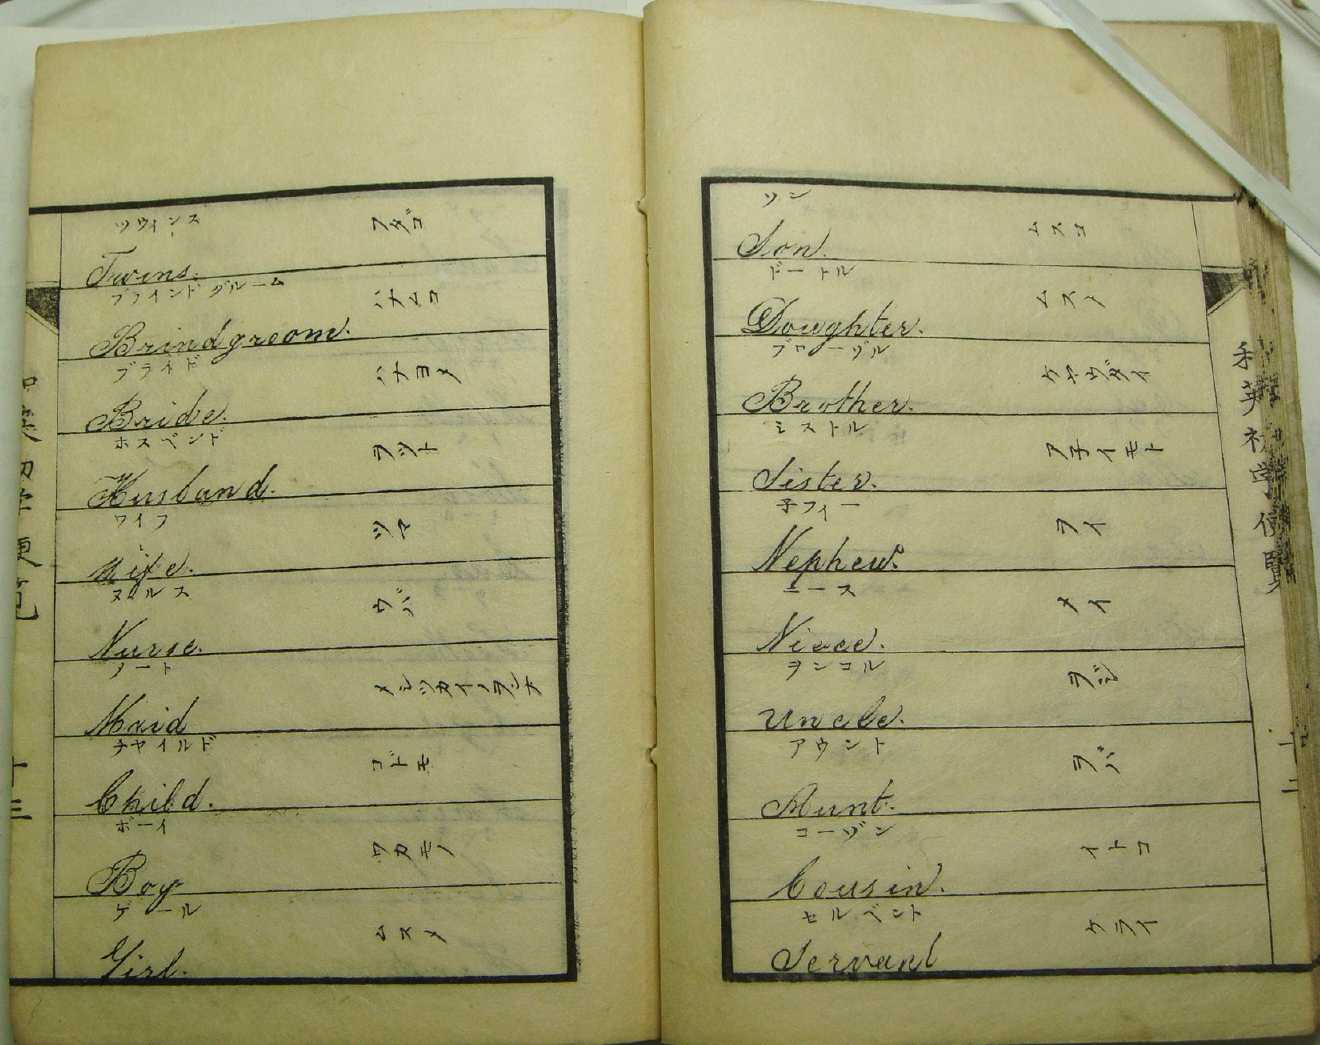 ソン ムスコ
Son.
ドートル ムスメ
Doughter.
ブローヅル ケヤウダイ
Brother.
シストル アネイモト
Sister.
子フィー ヲイ
Nephew.
ニース メイ
Niece.
ヲンコル ヲジ
Uncle.
アウント ヲバ
Aunt.
コーヅン イトコ
Cousin.
セルベント ケライ
Servant
和英初学便覧
十二
ツウィンス フダゴ
Twins.
ブラインドグルーム ハナムコ
Brindgroom.
ブライド ハナヨメ
Bride.
ホスベンド ヲット
Husband.
ワイフ ツマ
Wife.
ヌルス ウバ
Nurse.
メート メシツカイノヲンナ
Maid
チヤイルド コドモ
Child.
ボーイ ワカモノ
Boy
ゲール ムスメ
Girl.
十三